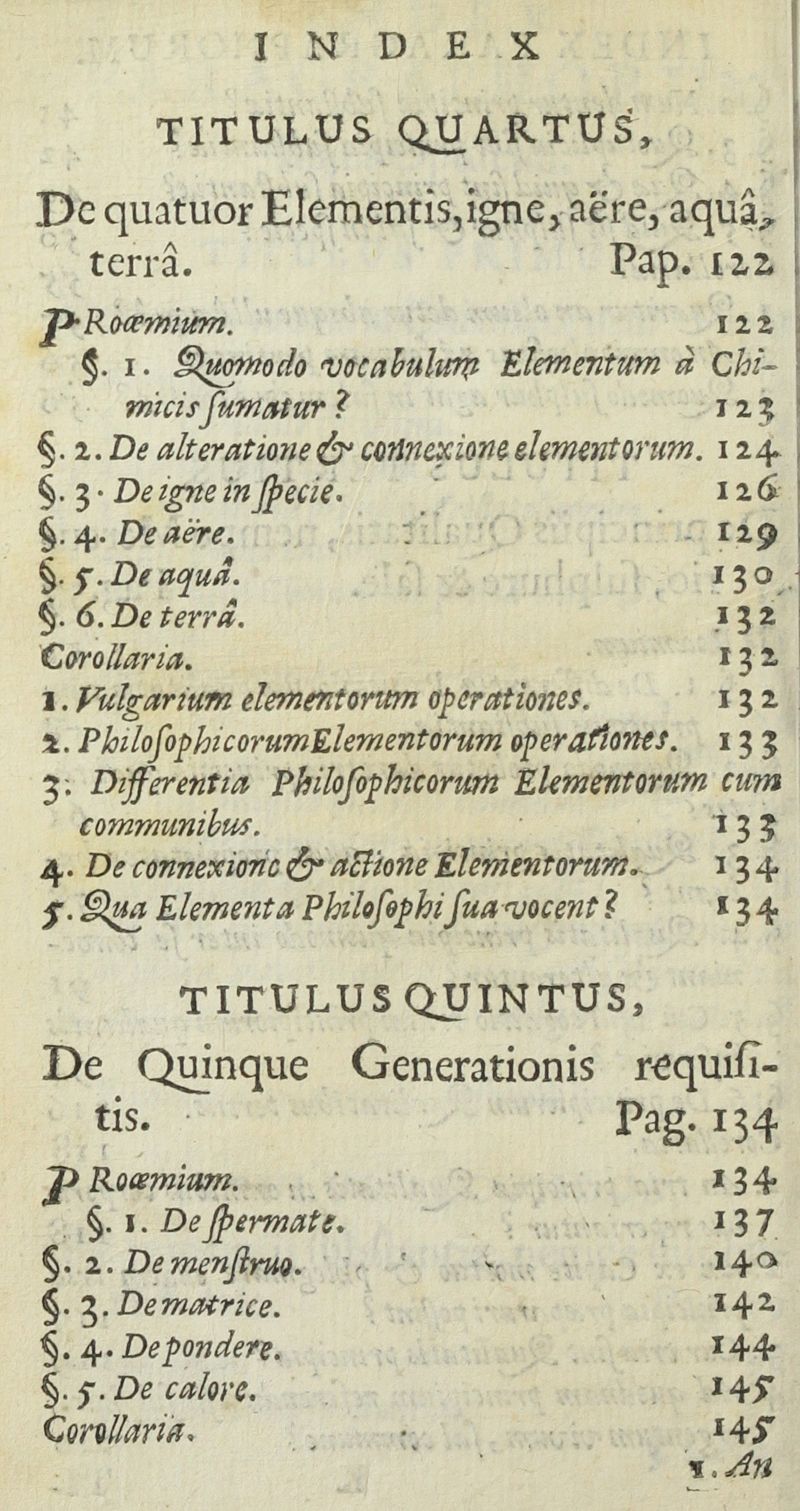 INDEX
TITULUS QUARTUS,
De quatuor Elementis, igne, aëre, aquâ,
terrâ. Pap. 122
PRoœmium. 122
§. 1. Quomodo vocabulum Elementum à Chi-
micis ſumatur ? 123
§. 2. De alteratione & connexione elementorum. 124
§. 3. De igne in ſpecie. 126
§. 4. De aëre. 129
§. 5. De aquâ. 130
§. 6. De terrâ. 132
Corollaria. 132
1. Vulgarium elementorum operationes. 132
2. Philoſophicorum Elementorum operationes. 133
3. Differentia Philoſophicorum Elementorum cum
communibus. 133
4. De connexione & actione Elementorum. 134
5. Qua Elementa Philoſophi ſua vocent ? 134
TITULUS QUINTUS,
De Quinque Generationis requiſi-
tis. Pag. 134
PRoœmium. 134
§. 1. De ſpermate. 137
§. 2. De menſtruo. 140
§. 3. De matrice. 142
§. 4. De pondere. 144
§. 5. De calore. 145
Corollaria. 145
1. An